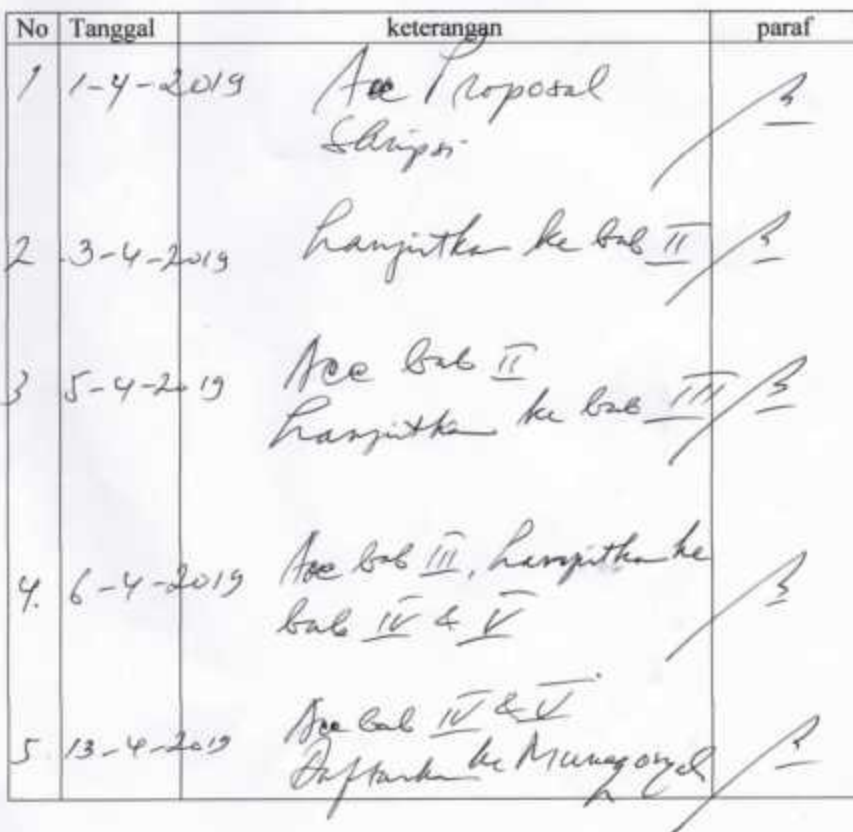 No Tanggal keterangan paraf
1 1-4-2019 Acc Proposal
Skripsi
2 3-4-2019 Lanjutkan ke bab II
3 5-4-2019 Acc bab II
Lanjutkan ke bab III
4. 6-4-2019 Acc bab III, Lanjutkan ke
bab IV & V
5 13-4-2019 Acc bab IV & V
Daftarkan ke Munaqosyah